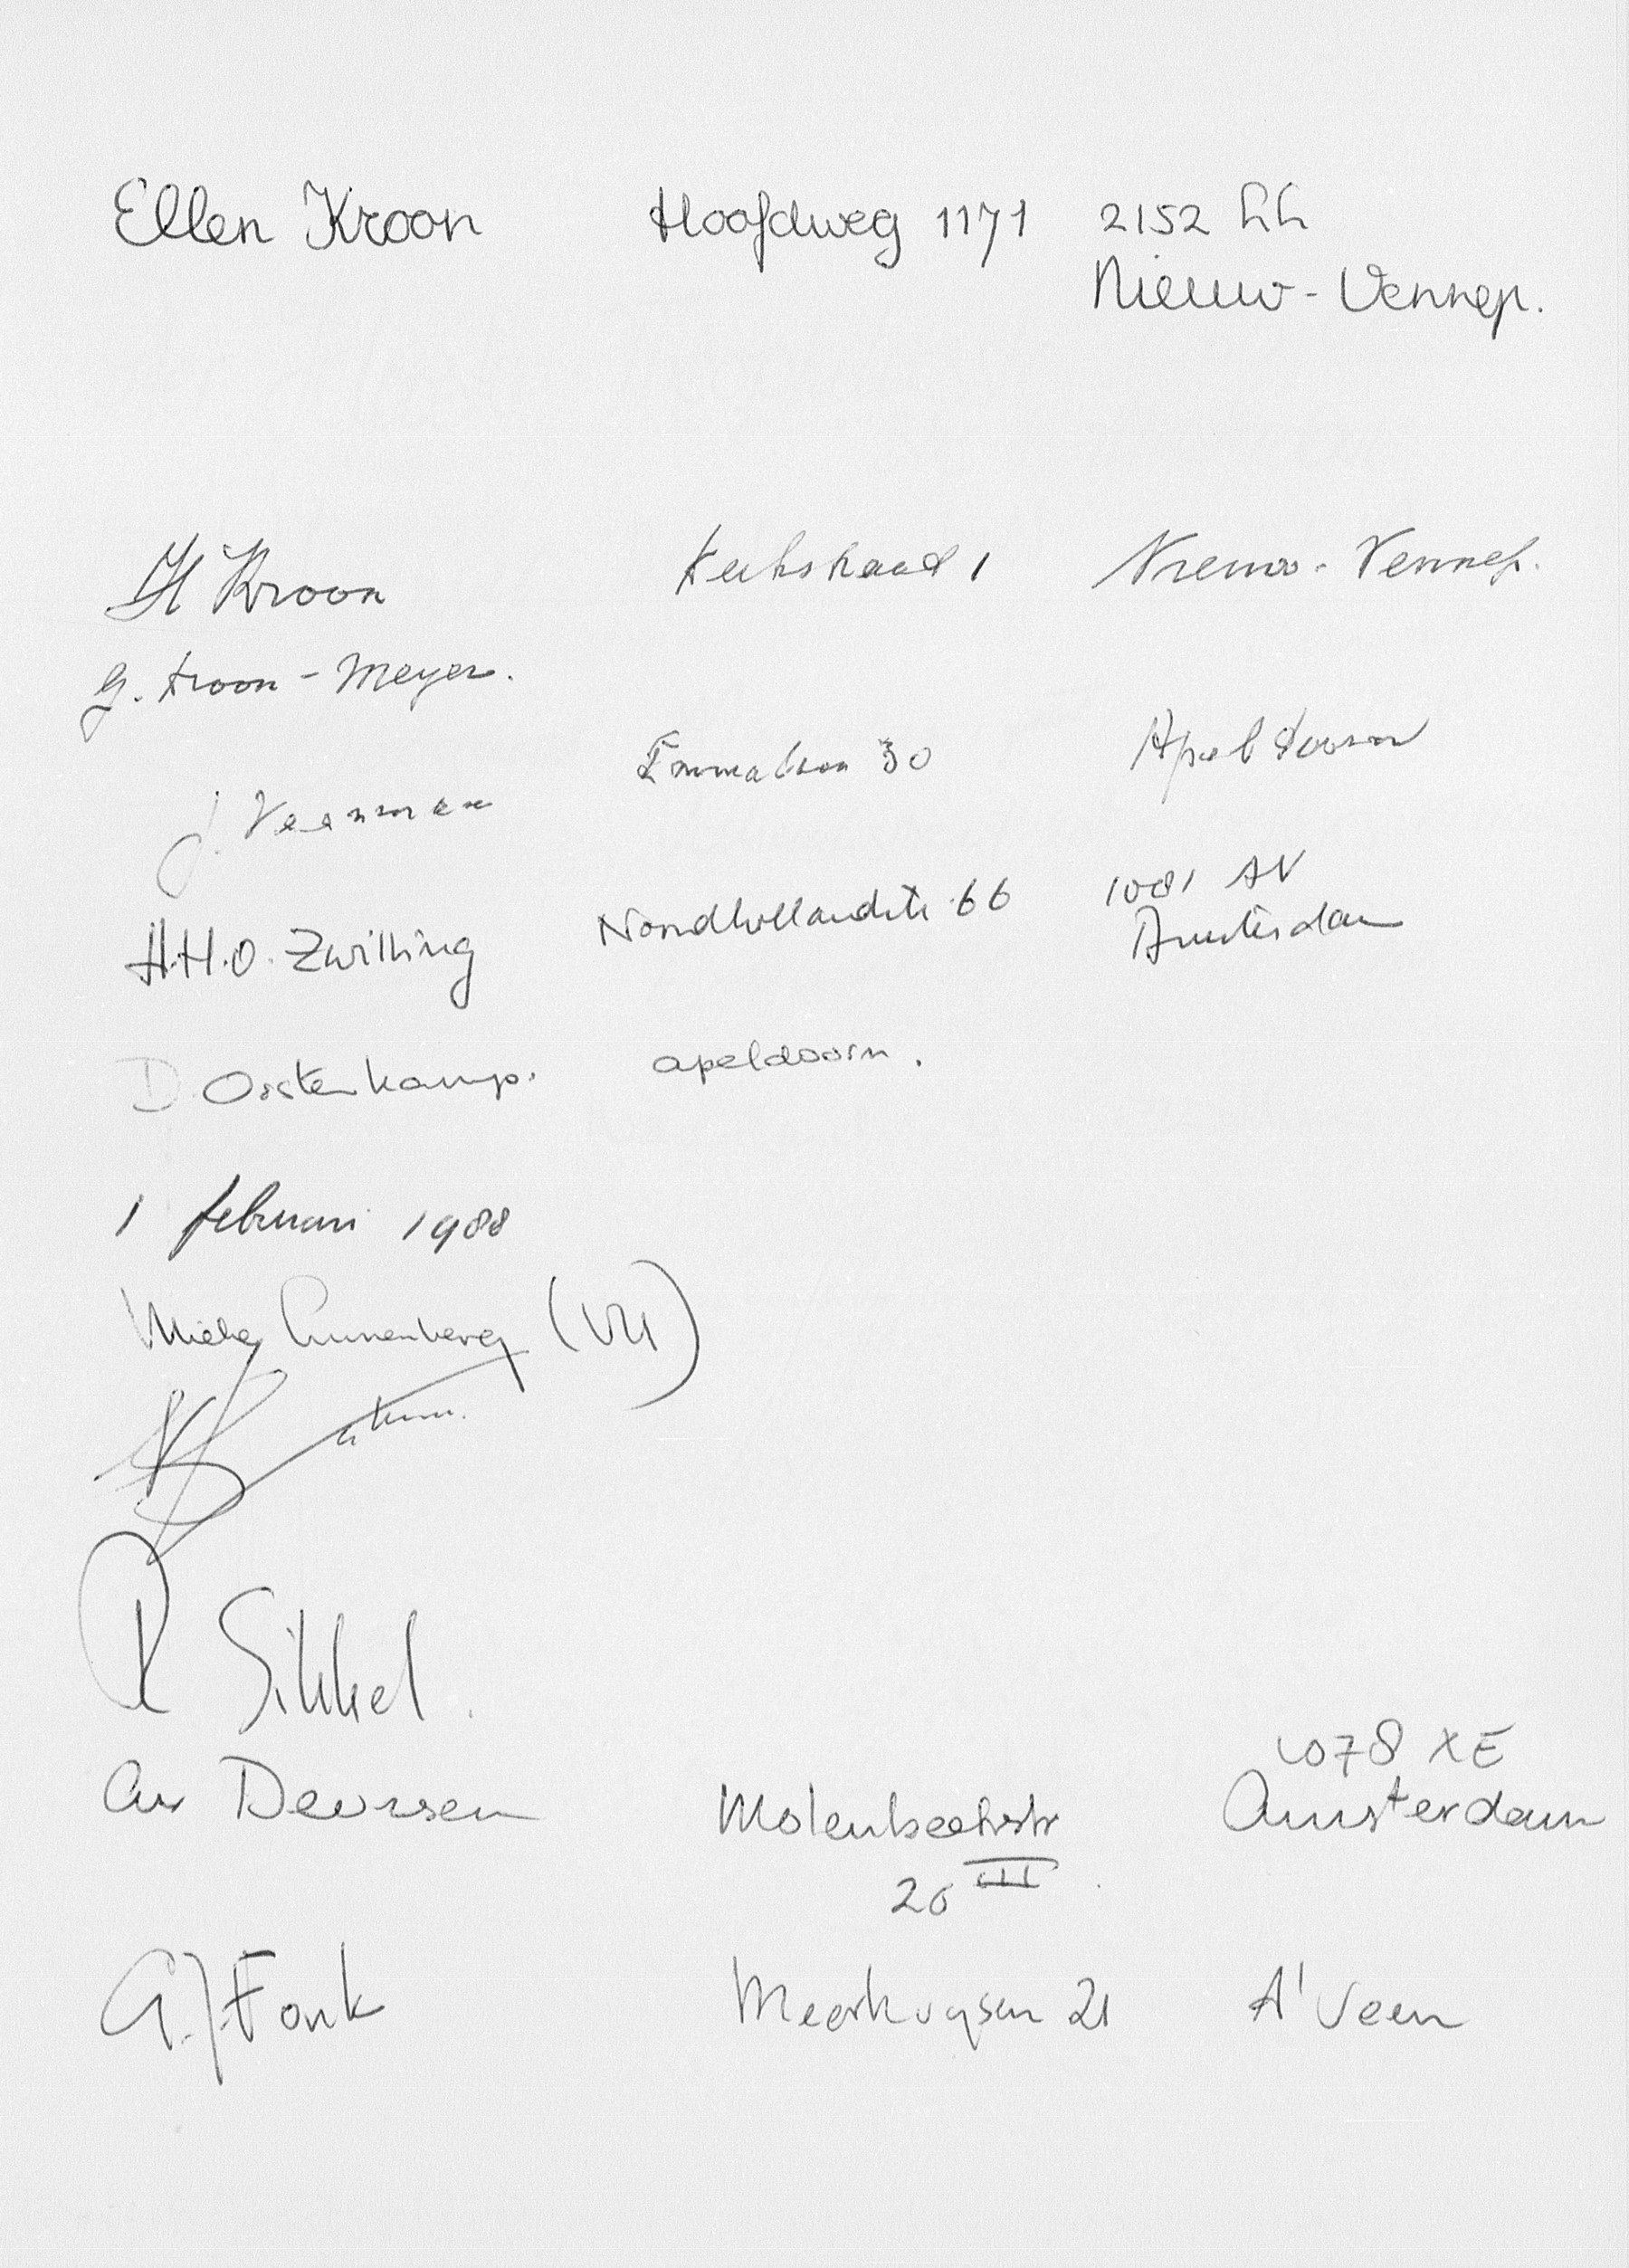 Ellen Kroon Hoofdweg 1171 2152 LH
Nieuw-Vennep.
H Kroon Kerkstraat 1 Nieuw-Vennep.
G. Kroon-Meyer.
J. Veenman Emmalaan 30 Apeldoorn
H.H.O. Zwilling Noordhollandstr 66 1081 AV
Amsterdam
D. Oostenkamp. apeldoorn.
1 februari 1988
(VU)
Sikkel.
1078 XE
Deursen Molenbeekstr Amsterdam
26 III
G.J. Fonk 21 A'Veen